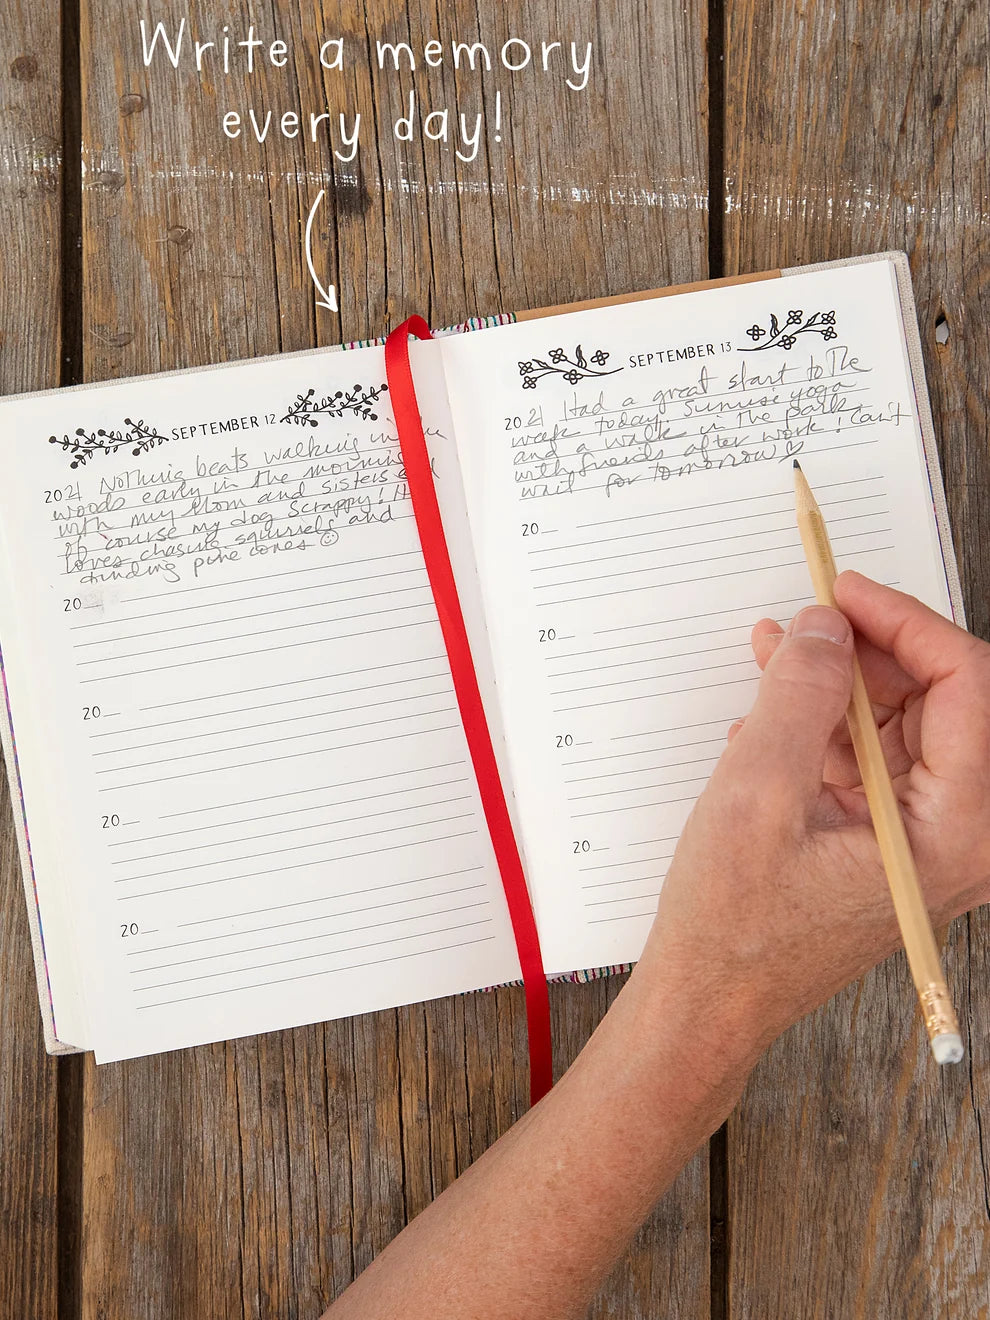 Write a memory
every day!
SEPTEMBER 12
2021 Nothing beats walking in
woods early in the morning
with my Mom and sisters
Of course my dog Scrappy! H
loves chasing squirrels and
finding pine cones ☺
20__
20__
20__
20__
SEPTEMBER 13
2021 Had a great start to the
week today. Sunrise yoga
and a walk in the park
with friends after work! Can't
wait for tomorrow ♡
20__
20__
20__
20__